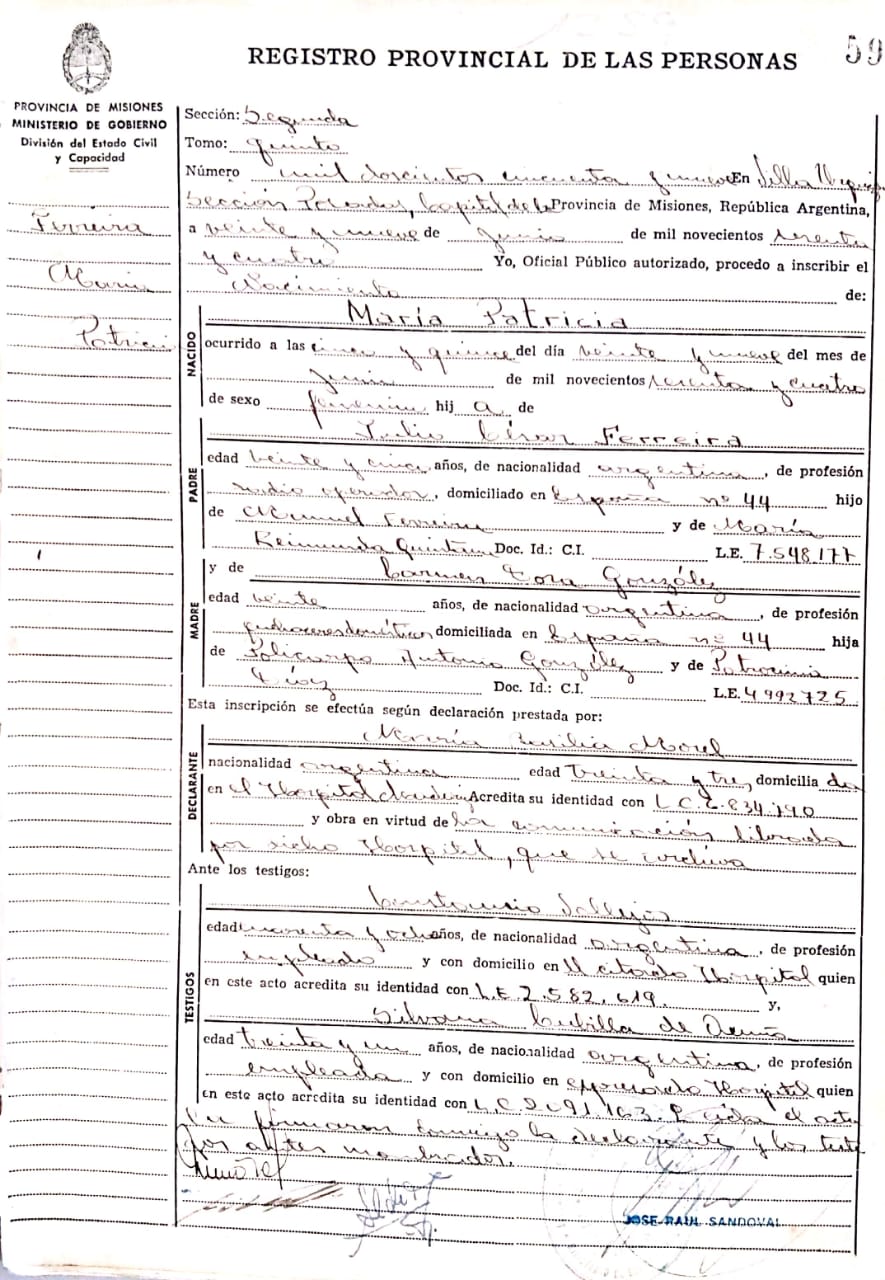 REGISTRO PROVINCIAL DE LAS PERSONAS
59
PROVINCIA DE MISIONES
MINISTERIO DE GOBIERNO
División del Estado Civil
y Capacidad
Ferreira
María
Patricia
Sección: Segunda
Tomo: Quinto
Número mil doscientos cincuenta y nueve En Villa Urquiza
Sección Posadas, Capital de la Provincia de Misiones, República Argentina,
a veinte y nueve de junio de mil novecientos sesenta
y cuatro Yo, Oficial Público autorizado, procedo a inscribir el
Nacimiento de:
NACIDO
María Patricia
ocurrido a las cinco y quince del día veinte y nueve del mes de
junio de mil novecientos sesenta y cuatro
de sexo femenino hij a de
PADRE
Julio César Ferreira
edad veinte y cinco años, de nacionalidad argentina, de profesión
radio operador, domiciliado en España nº 44 hijo
de Manuel Ferreira y de María
Reimunda Quintana Doc. Id.: C.I. L.E. 7.548.177
MADRE
y de Carmen Dora González
edad veinte años, de nacionalidad argentina, de profesión
quehaceres domésticos domiciliada en España nº 44 hija
de Policarpo Antonio González y de Patrocinia
Díaz Doc. Id.: C.I. L.E. 4992725
Esta inscripción se efectúa según declaración prestada por:
DECLARANTE
María Morel
nacionalidad argentina edad treinta y tres, domicilia da
en el Hospital Acredita su identidad con L.C. 6.834.790
y obra en virtud de la comunicación librada
por dicho Hospital, que se archiva
Ante los testigos:
TESTIGOS
Vallejos
edad cuarenta y ocho años, de nacionalidad argentina, de profesión
empleado y con domicilio en el citado Hospital quien
en este acto acredita su identidad con L.E. 2.582.619 y,
Silvana Cubilla de Acuña
edad treinta y un años, de nacionalidad argentina, de profesión
empleada y con domicilio en expresado Hospital quien
en este acto acredita su identidad con L.C. 2.091.163. Leída el acta
firmaron conmigo la declarante y los testi
gos antes nombrados.
JOSE RAUL SANDOVAL